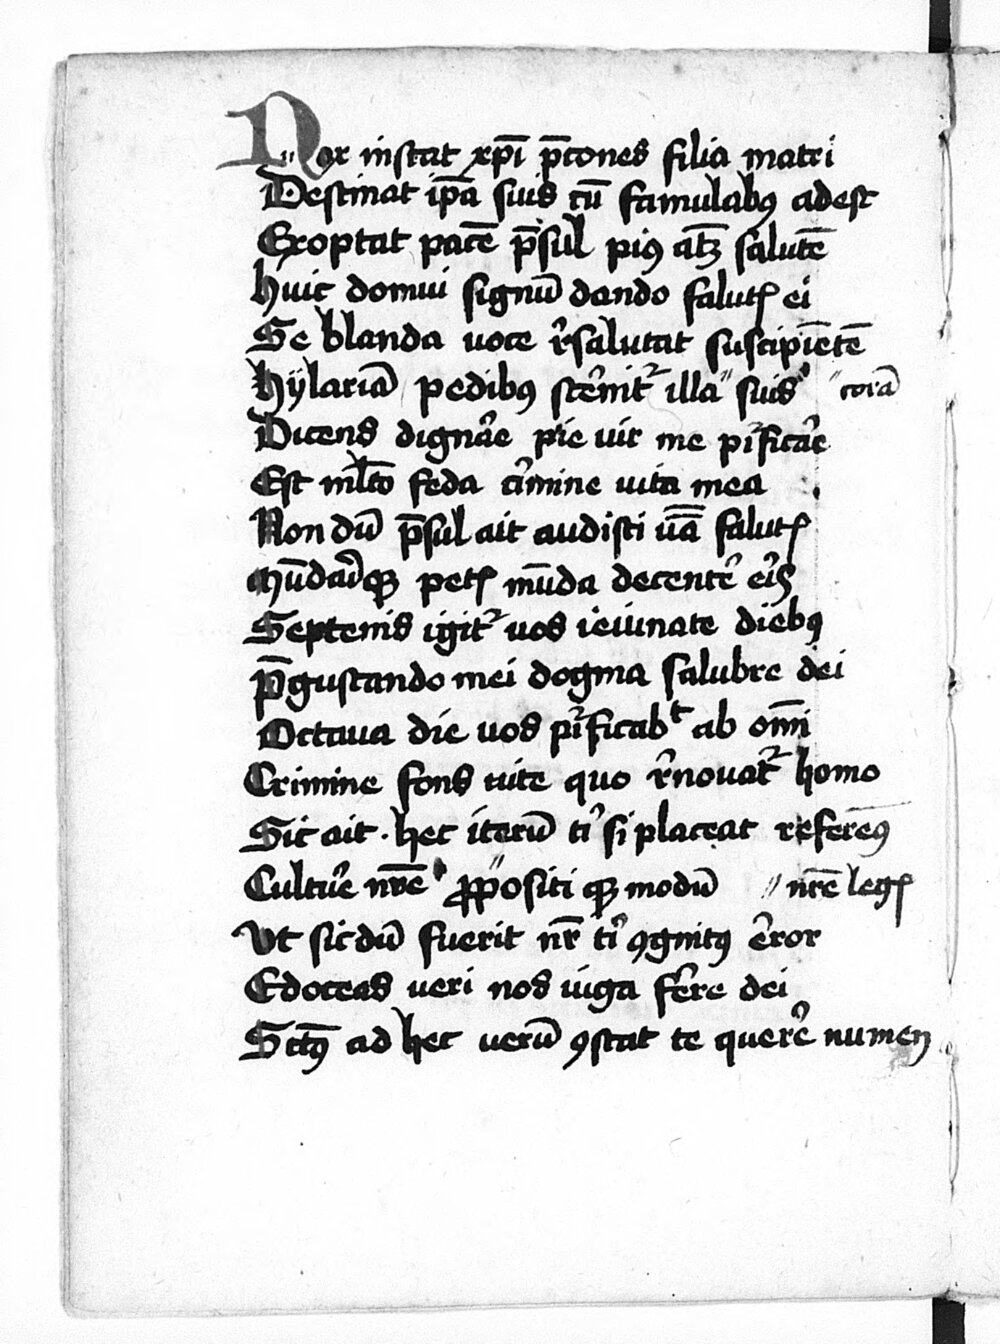 Nox instat xp̄i p̄cones filia matri
Destinat ip̄a suis cū famulabꝰ adest
Exoptat pacē p̄sul piꝰ atqꝫ salutē
Huic domui signū dando salutꝭ ei
Se blanda uoce r̉salutat suscipiētē
Hÿlariā pedibꝰ st̉nitᷣ illa" suis " corā
Dicens dignar̉e pie uir me pᷣificar̉e
Est ml̄to feda c̉mine uita mea
Non dū p̄sul ait audisti uām salutꝭ
petꝭ mūda decent̉
Septenis igitᷣ uos ieiunate diebꝰ
P̄gustando mei dogma salubre dei
Octaua die uos pᷣificabᵗ ab om̄i
Crimine fons uite quo r̉nouatᷣ homo
Sic ait · hec iterū t̉ si placeat referēꝰ
Cultur̉e nr̄e ꝓp"ositi qꝫ modū " nr̄e legꝭ
Vt sic dū fuerit nr̄ t̉ ꝯgnitꝰ error
Edoceas ueri nos iuga ferre dei
Sctꝰ ad hec uerū ꝯstat te quer̉e numen